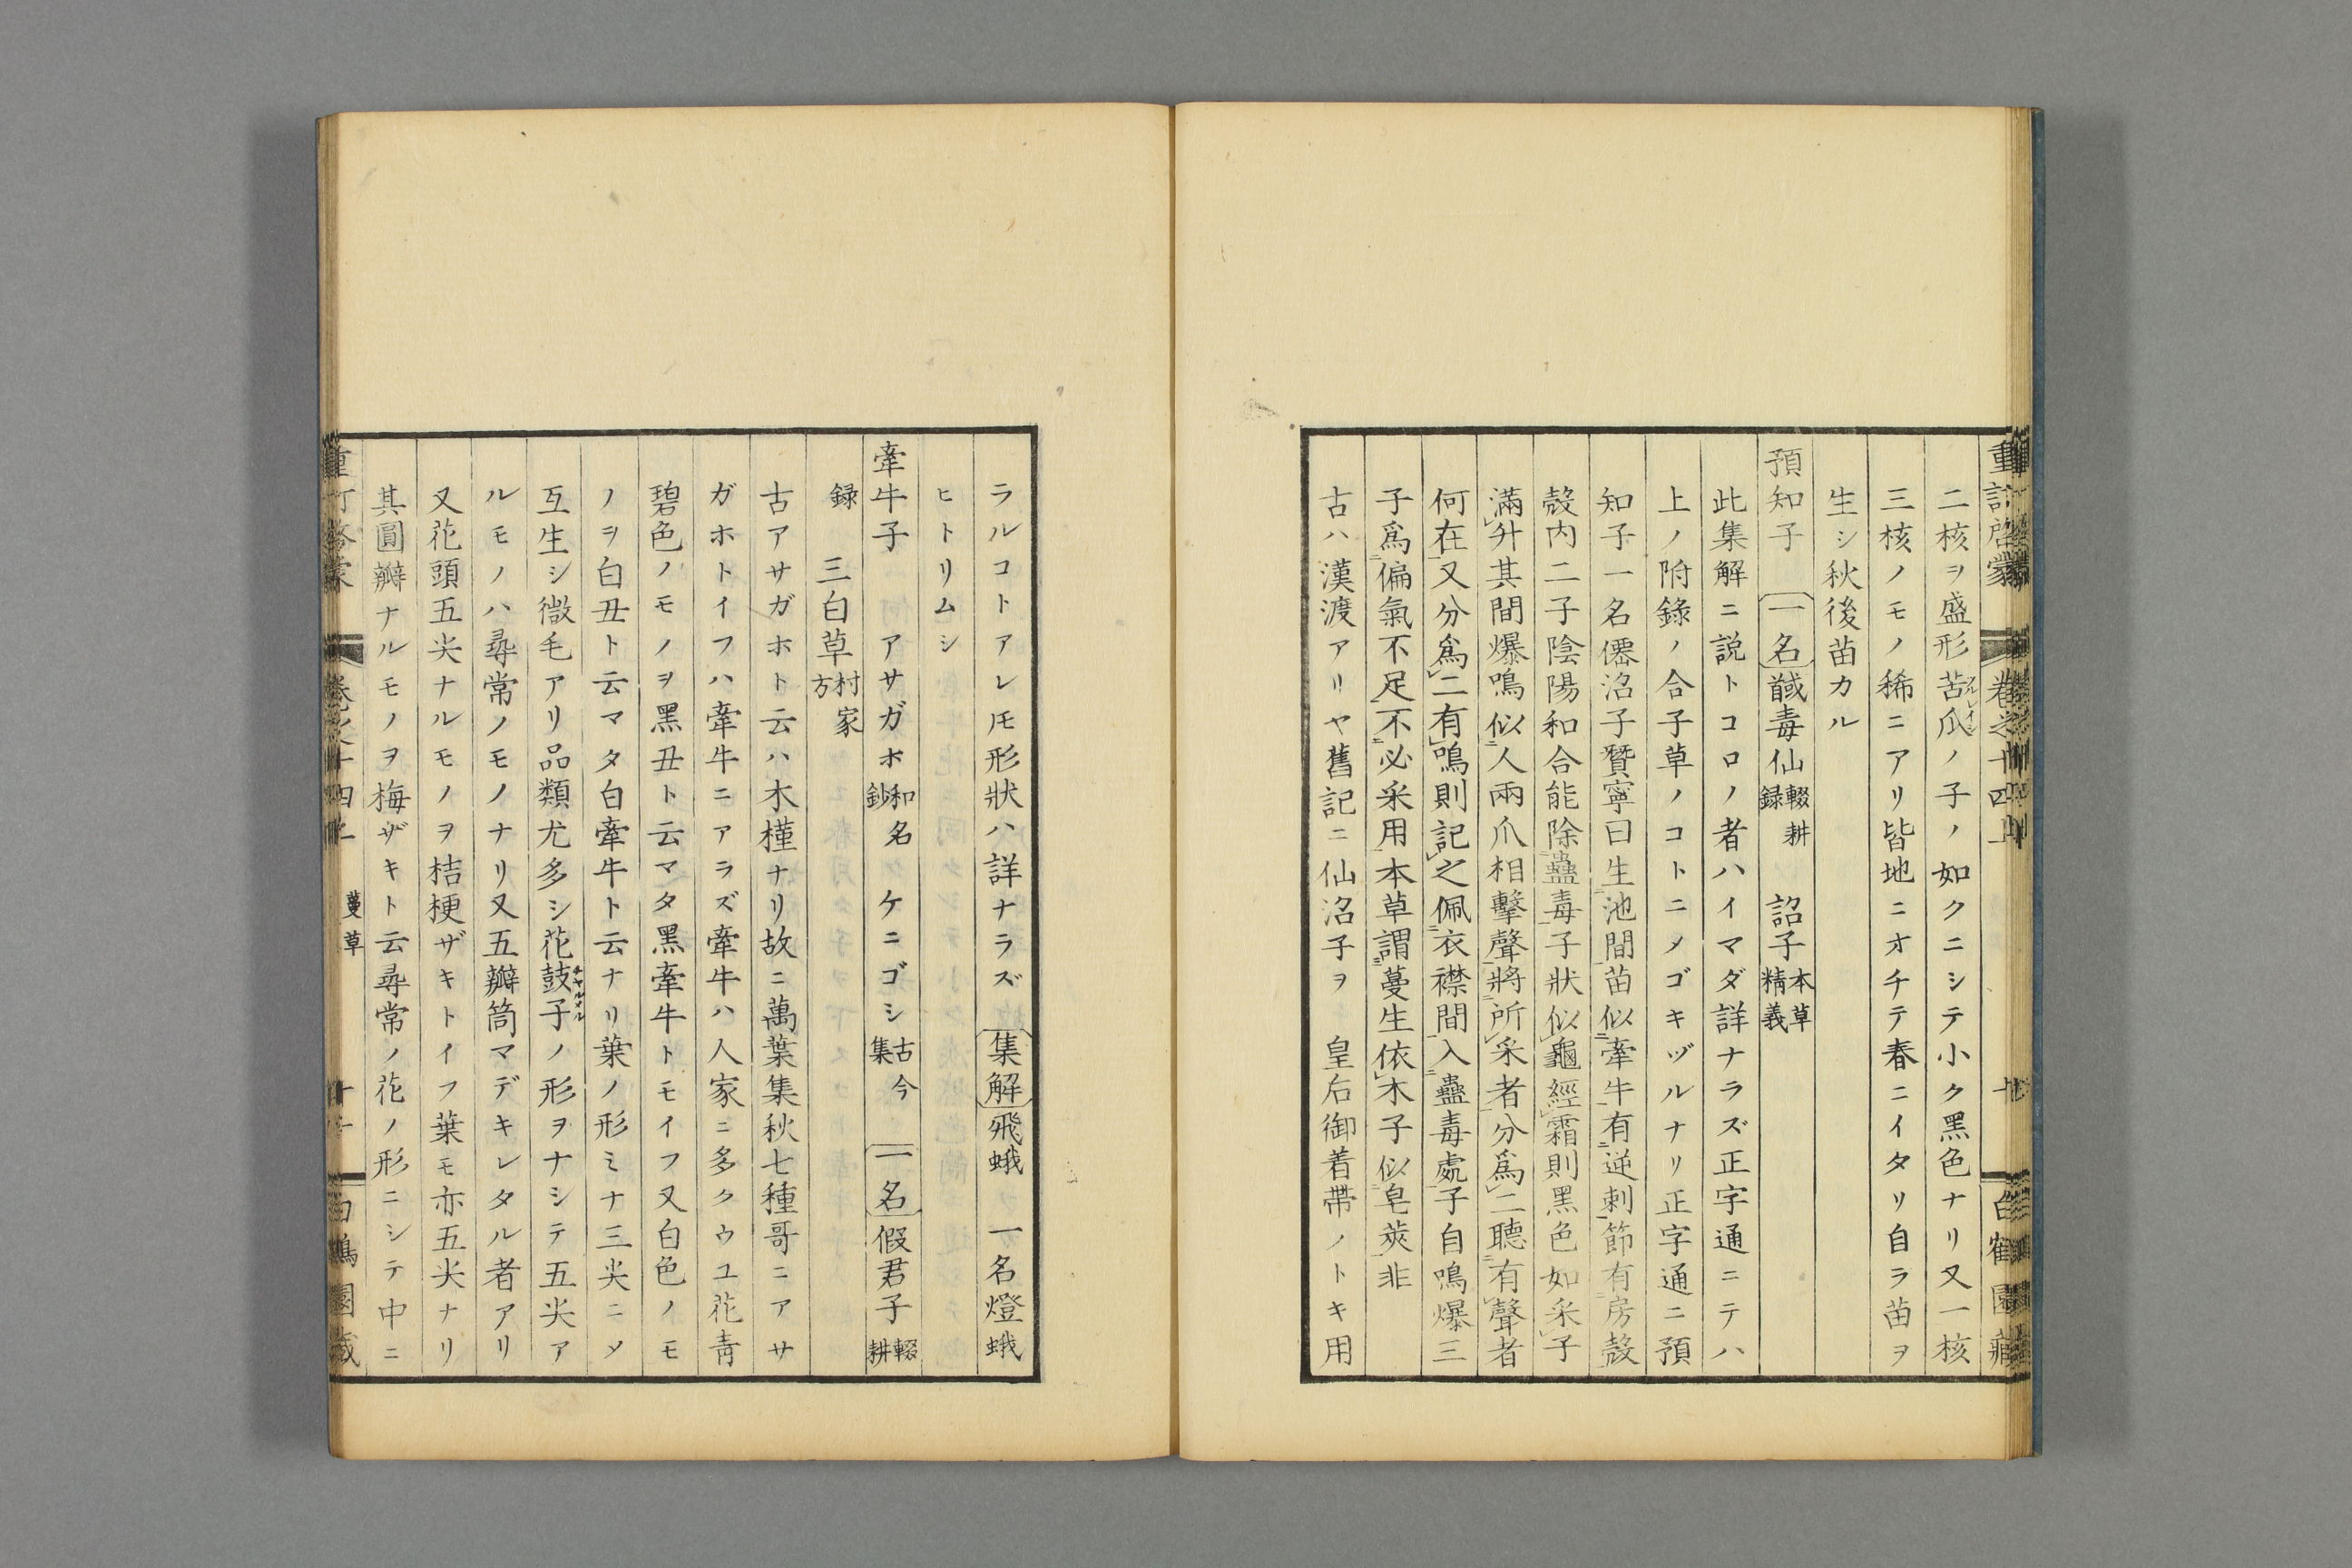 重訂啓蒙 卷之十四上 白鶴園藏
二核ヲ盛形苦瓜ノ子ノ如クニシテ小ク黑色ナリ又一核
三核ノモノ稀ニアリ皆地ニオチテ春ニイタリ自ラ苗ヲ
生シ秋後苗カル
預知子 一名 䤋毒仙輟耕録 詔子本草精義
此集解ニ説トコロノ者ハイマダ詳ナラズ正字通ニテハ
上ノ附錄ノ合子草ノコトニメゴキヅルナリ正字通ニ預
知子一名僊沼子贊寧曰生池間苗似牽牛有逆刺節有房殼
殼内二子陰陽和合能除蠱毒子狀似龜經霜則黑色如采子
滿升其間爆鳴似人兩爪相擊聲將所采者分爲二聽有聲者
何在又分爲二有鳴則記之佩衣襟間入蠱毒處子自鳴爆三
子爲偏氣不足不必采用本草謂蔓生依木子似皂莢非
古ハ漢渡アリヤ舊記ニ仙沼子ヲ 皇后御着帶ノトキ用
ラルコトアレ𪜈形狀ハ詳ナラズ 集解 飛蛾 一名燈蛾
ヒトリムシ
牽牛子 アサガホ和名鈔 ケニゴシ古今集 一名 假君子輟耕
録 三白草村家方
古アサガホト云ハ木槿ナリ故ニ萬葉集秋七種哥ニアサ
ガホトイフハ牽牛ニアラズ牽牛ハ人家ニ多クウユ花青
碧色ノモノヲ黑丑ト云マタ黑牽牛トモイフ又白色ノモ
ノヲ白丑ト云マタ白牽牛ト云ナリ葉ノ形ミナ三尖ニメ
互生シ微毛アリ品類尤多シ花鼓子チャルメルノ形ヲナシテ五尖ア
ルモノハ尋常ノモノナリ又五瓣筒マデキレタル者アリ
又花頭五尖ナルモノヲ桔梗ザキトイフ葉モ亦五尖ナリ
其圓瓣ナルモノヲ梅ザキト云尋常ノ花ノ形ニシテ中ニ
重訂啓蒙 卷之十四上 蔓草 白鶴園藏